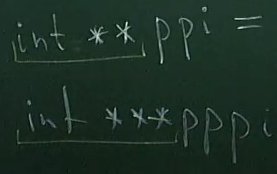 int ** ppi =
int *** pppi